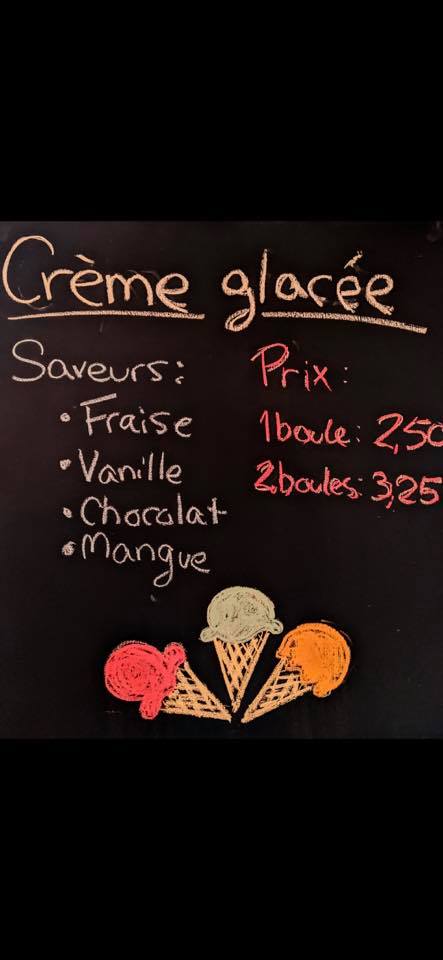 Crème glacée
Saveurs:
• Fraise
• Vanille
• Chocolat
• Mangue
Prix:
1 boule: 2,50
2 boules: 3,25